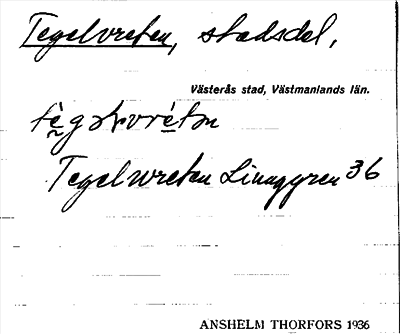 Tegelvreten, stadsdel,
Västerås stad, Västmanlands län.
Tegelvreten Linngyren 36
ANSHELM THORFORS 1936